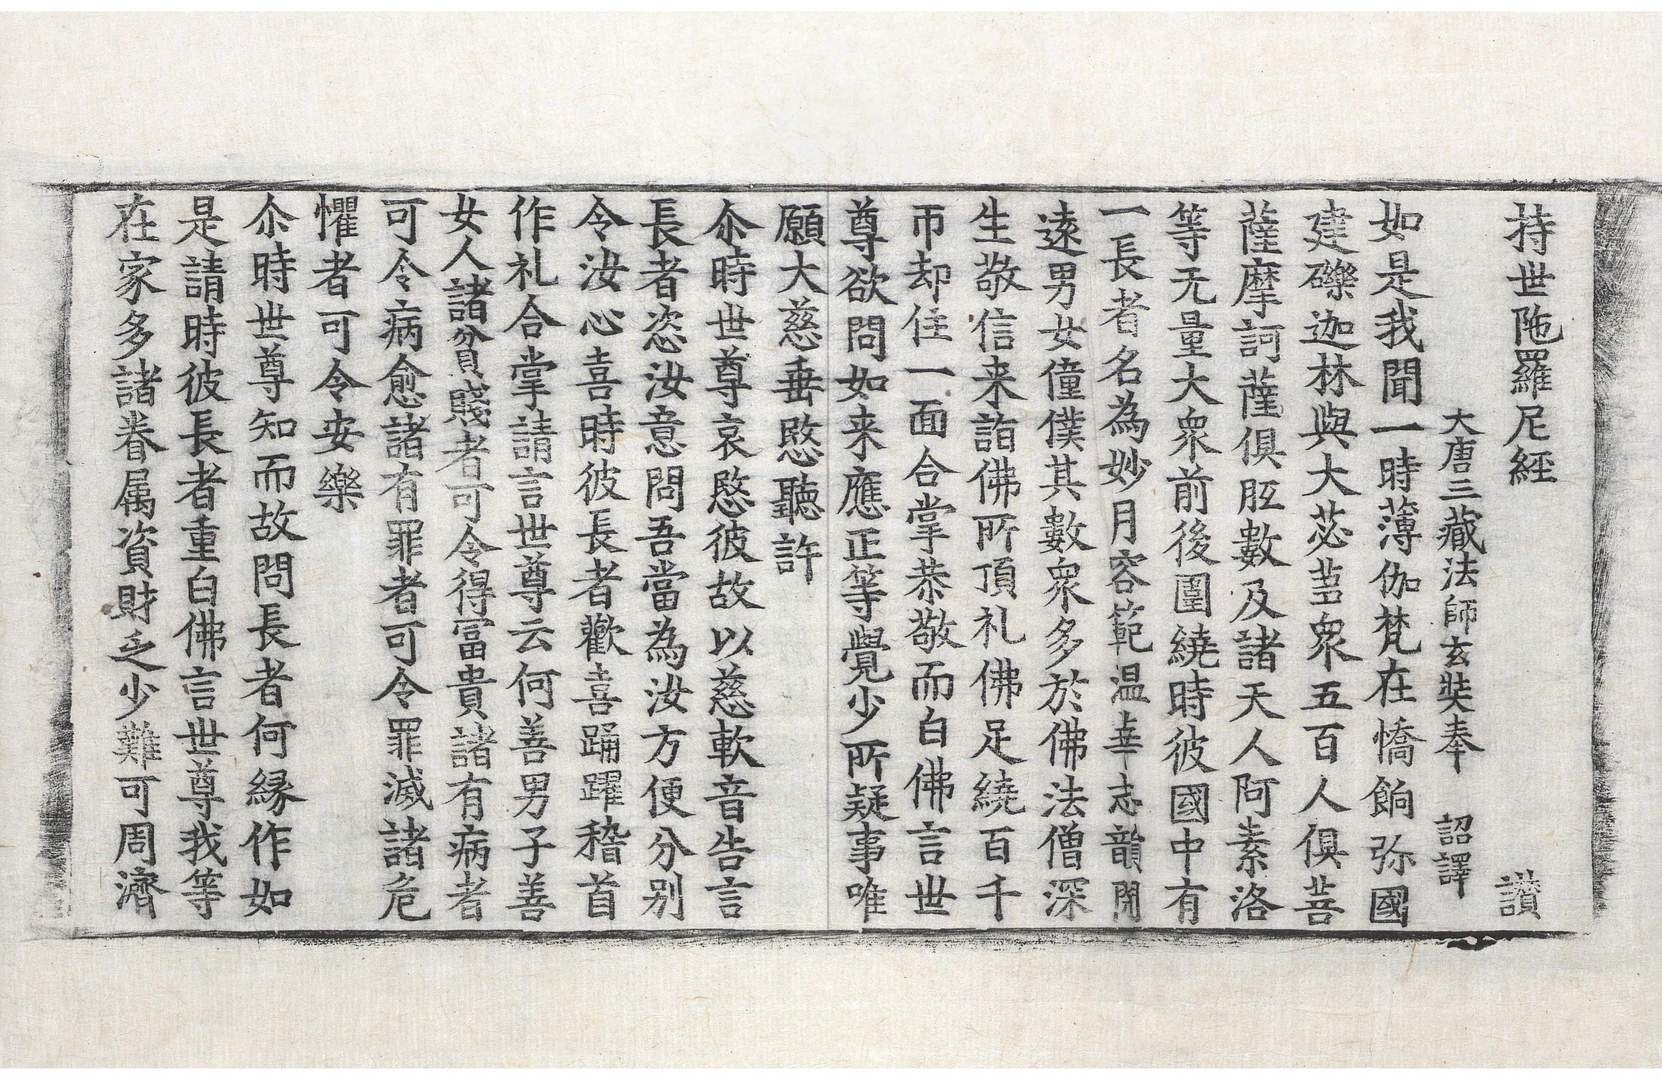 持世陁羅尼經 讃
大唐三藏法師玄奘奉 詔譯
如是我聞一時薄伽梵在憍餉弥國
建磔迦林與大苾蒭衆五百人俱菩
薩摩訶薩俱胝數及諸天人阿素洛
等无量大衆前後圍繞時彼國中有
一長者名為妙月容範温華志韻閑
遠男女僮僕其數衆多於佛法僧深
生敬信来詣佛所頂礼佛足繞百千
帀却住一面合掌恭敬而白佛言世
尊欲問如来應正等覺少所疑事唯
願大慈垂愍聽許
尒時世尊哀愍彼故以慈軟音告言
長者恣汝意問吾當為汝方便分别
令汝心喜時彼長者歡喜踊躍稽首
作礼合掌請言世尊云何善男子善
女人諸貧賤者可令得冨貴諸有病者
可令病愈諸有罪者可令罪滅諸危
懼者可令安樂
尒時世尊知而故問長者何縁作如
是請時彼長者重白佛言世尊我等
在家多諸眷属資財乏少難可周濟